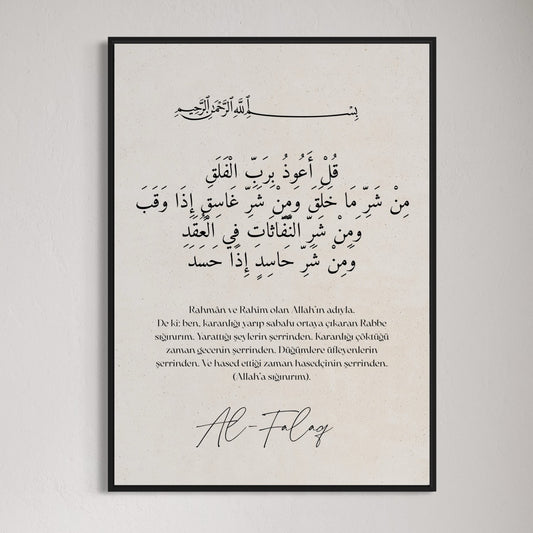 بِسْمِ ٱللَّهِ ٱلرَّحْمَٰنِ ٱلرَّحِيمِ
قُلْ أَعُوذُ بِرَبِّ الْفَلَقِ
مِنْ شَرِّ مَا خَلَقَ وَمِنْ شَرِّ غَاسِقٍ إِذَا وَقَبَ
وَمِنْ شَرِّ النَّفَّاثَاتِ فِي الْعُقَدِ
وَمِنْ شَرِّ حَاسِدٍ إِذَا حَسَدَ
Rahmân ve Rahîm olan Allah'ın adıyla.
De ki: ben, karanlığı yarıp sabahı ortaya çıkaran Rabbe
sığınırım. Yarattığı şeylerin şerrinden. Karanlığı çöktüğü
zaman gecenin şerrinden. Düğümlere üfleyenlerin
şerrinden. Ve hased ettiği zaman hasedçinin şerrinden.
(Allah'a sığınırım).
Al-Falaq